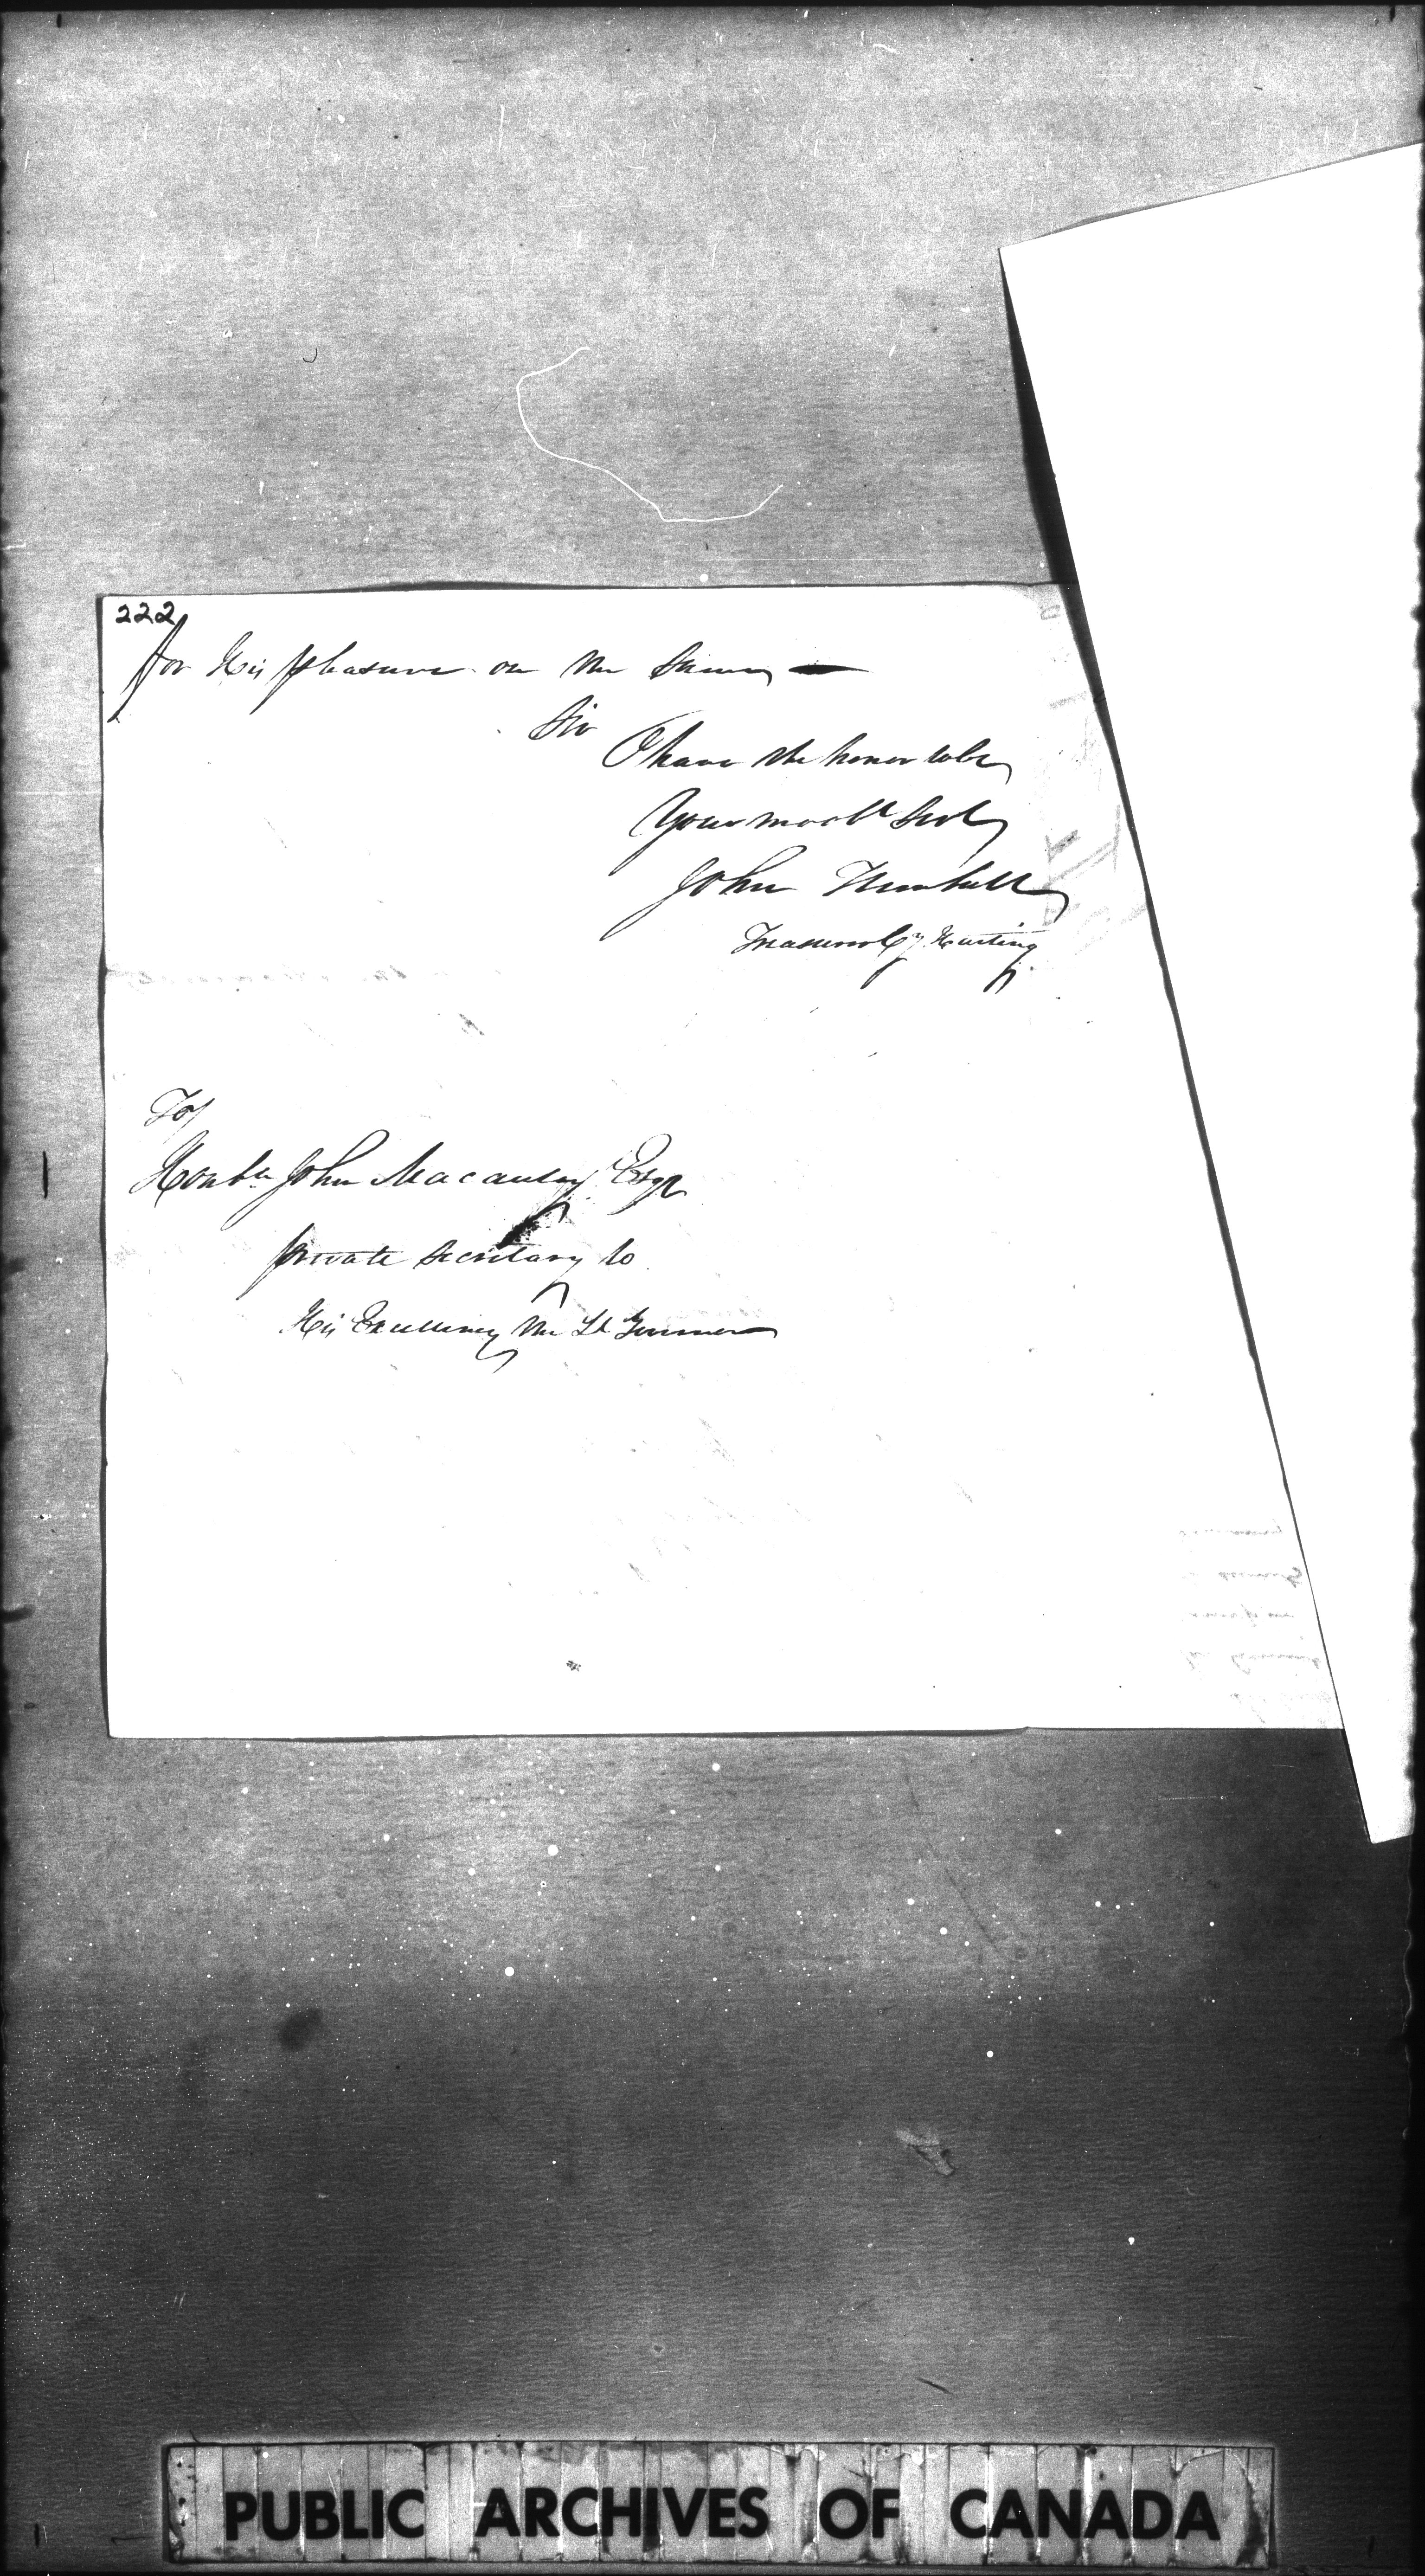 222
for His pleasure on the Same —
Sir
I have the honor to be
Your mo obt Servt
John Turnbull
Treasurer Cy Hasting
To/
Honble John Macaulay Esqr
private secretary to
His Excellency the Lt Governor
PUBLIC ARCHIVES OF CANADA